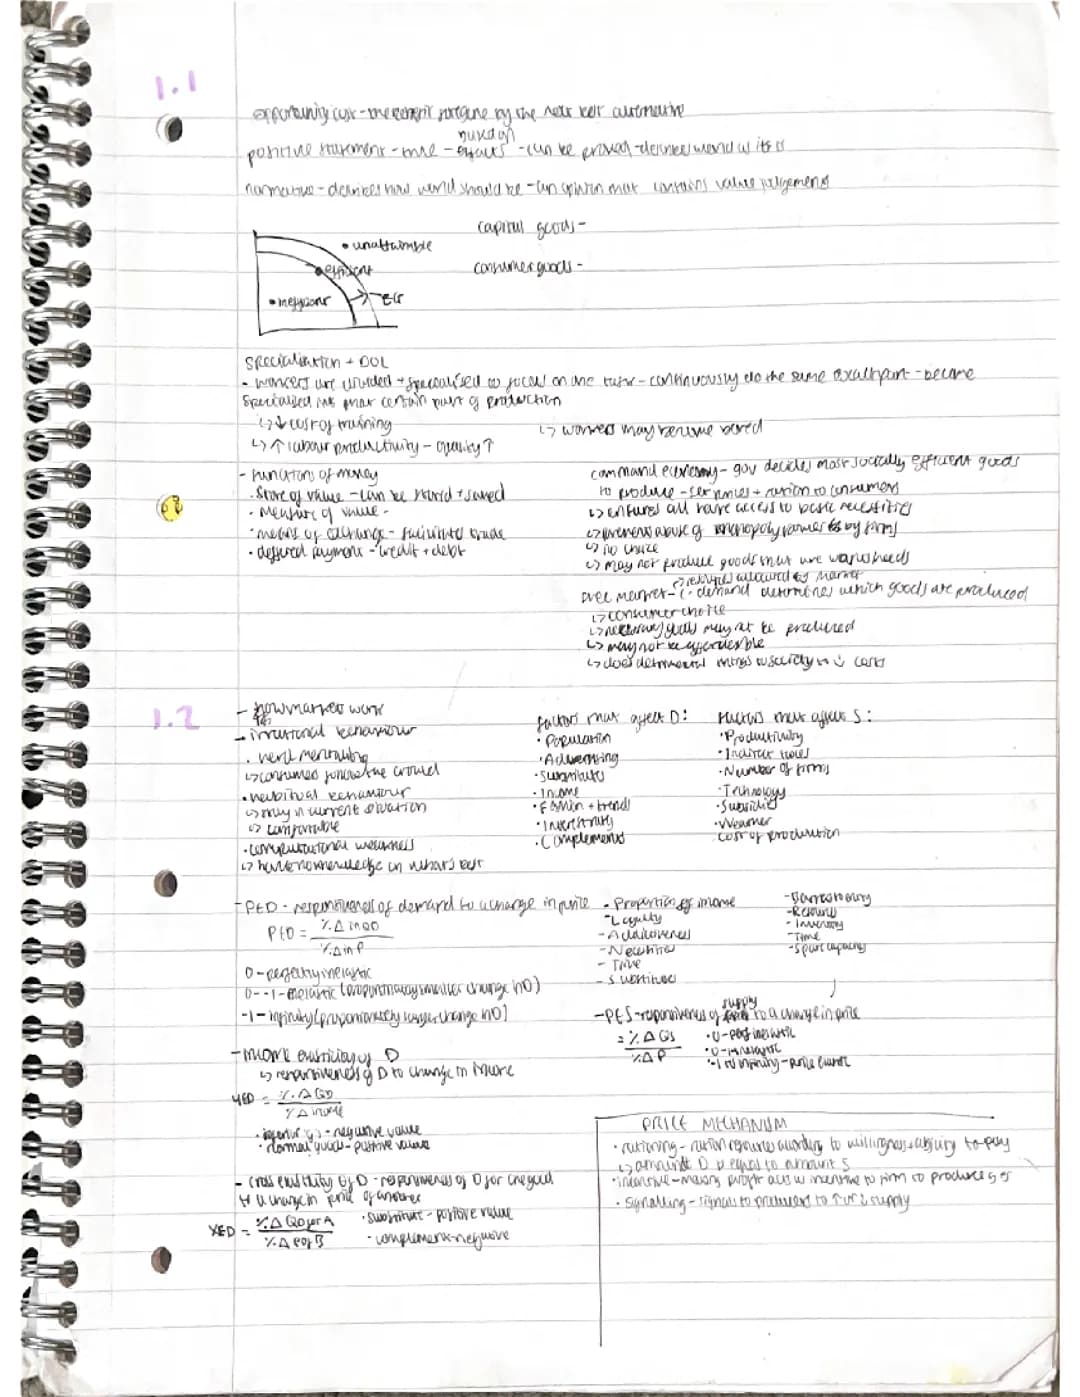 1.1
opportunity cost - the benefit foregone by the next best alternative
based on
positive statement - true - facts - can be proved - describes world as it is
normative - describes how world should be - an opinion that contains value judgements
capital goods -
• unattainable
• efficient
consumer goods -
• inefficient
EG
Specialisation + DOL
- workers are divided + specialised to focus on one task - continuously do the same exact part - become
specialised in that certain part of production
↳ ↓ cost of training
↳ workers may become bored
↳ ↑ labour productivity - quality ↑
- Functions of money
· Store of value - can be stored + saved
· Measure of value -
· means of exchange - facilitate trade
· deffered payment - credit + debt
command economy - gov decides most socially efficient goods
to produce - services + ration to consumers
↳ ensures all have access to basic necessities
↳ prevents abuse of monopoly power by firms
↳ no choice
↳ may not produce goods that are wants/needs
↳ resources allocated by market
free market - demand determines which goods are produced
↳ consumer choice
↳ necessary goods may not be produced
↳ may not be affordable
↳ does detrimental things to society to ↓ costs
1.2
- how markets work
- irrational behaviour
· herd mentality
↳ consumers follow the crowd
· habitual behaviour
↳ stay in current situation
↳ comfortable
· computational weakness
↳ have no knowledge on what's best
factors that affect D:
· Population
· Advertising
· Substitutes
· Income
· Fashion + trends
· Interest rates
· Complements
Factors that affect S:
· Productivity
· Indirect taxes
· Number of firms
· Technology
· Subsidies
· Weather
· Cost of production
- PED - responsiveness of demand to a change in price
PED = %Δ in QD
%Δ in P
0 - perfectly inelastic
0 - -1 - inelastic (proportionately smaller change in D)
-1 - infinity (proportionately larger change in D)
- Proportion of income
- Loyalty
- Addictiveness
- Necessities
- Time
- Substitutes
- Resources
- Inventory
- Time
- Spare capacity
supply
- PES - responsiveness of to a change in price
= %Δ QS
%Δ P
· 0 - perf inelastic
· 0-1 inelastic
· 1 to infinity - price elastic
- Income elasticity of D
↳ responsiveness of D to change in Income
YED = %Δ QD
%Δ income
· inferior g's - negative value
· normal goods - positive value
- cross elasticity of D - responsiveness of D for one good
to a change in price of another
XED = %Δ QD for A
%Δ P of B
· substitute - positive value
· complement - negative
PRICE MECHANISM
· rationing - ration resources according to willingness + ability to pay
↳ amount D is equal to amount S
· incentive - making profit acts as incentive to firm to produce g's
· signalling - signals to producers to ↑ or ↓ supply